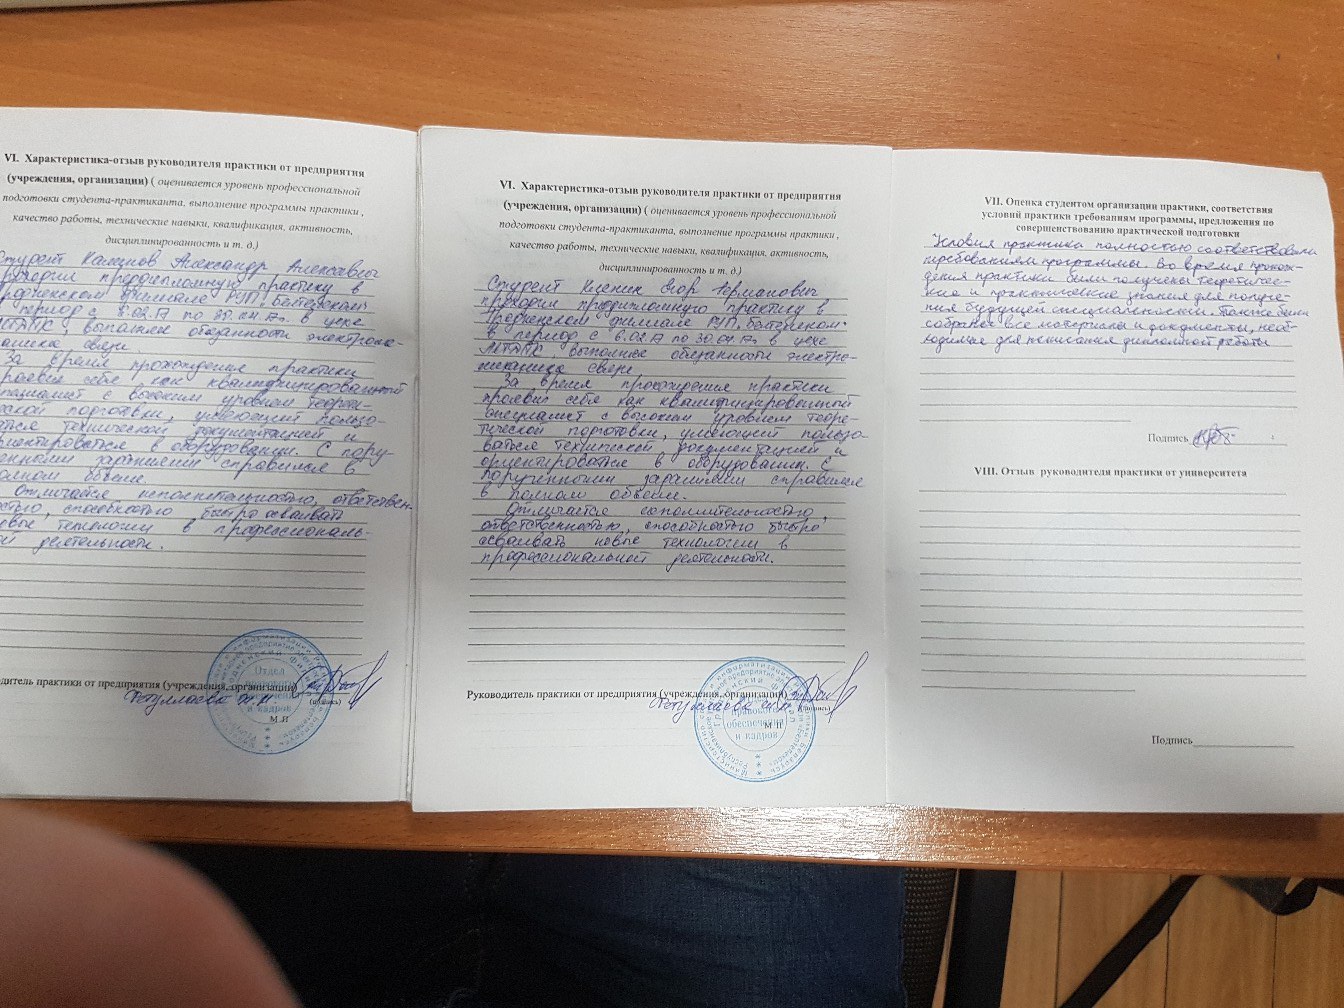 VI. Характеристика-отзыв руководителя практики от предприятия
(учреждения, организации) ( оценивается уровень профессиональной
подготовки студента-практиканта, выполнение программы практики ,
качество работы, технические навыки, квалификация, активность,
дисциплинированность и т. д.)
Александр
проходил преддипломную практику в
филиале РУП
период с 6.02.17 по 30.04.17г. в цехе
выполнял обязанности электроме-
связи
За время прохождения практики
себя как квалифицированный
с высоким уровнем теорети-
ческой подготовки, умеющий пользо-
ваться технической документацией и
ориентироваться в оборудовании. С пору-
ченными заданиями справился в
объеме
Отличается исполнительностью, ответствен-
ностью, способностью быстро осваивать
новые технологии в профессиональ-
деятельности.
практики от предприятия (учреждения, организации)
(подпись)
Отдел
и кадров
М П
VI. Характеристика-отзыв руководителя практики от предприятия
(учреждения, организации) ( оценивается уровень профессиональной
подготовки студента-практиканта, выполнение программы практики ,
качество работы, технические навыки, квалификация, активность,
дисциплинированность и т. д.)
Студент Егор Германович
проходил преддипломную практику в
Гродненском филиале РУП
в период с 6.02.17 по 30.04.17г. в цехе
выполнял обязанности электро-
механика связи
За время прохождения практики
проявил себя как квалифицированный
специалист с высоким уровнем теоре-
тической подготовки, умеющий пользо-
ваться технической документацией и
ориентироваться в оборудовании. С
порученными заданиями справился
в полном объеме.
Отличается исполнительностью,
ответственностью, способностью быстро
осваивать новые технологии в
профессиональной деятельности.
Руководитель практики от предприятия (учреждения, организации)
(подпись)
правового
обеспечения
и кадров
М П
VII. Оценка студентом организации практики, соответствия
условий практики требованиям программы, предложения по
совершенствованию практической подготовки
Условия практики полностью соответствовали
требованиям программы. Во время прохож-
дения практики были получены теоретичес-
кие и практические знания для получе-
ния будущей специальности. Также были
собраны все материалы и документы, необ-
ходимые для написания дипломной работы
Подпись
VIII. Отзыв руководителя практики от университета
Подпись